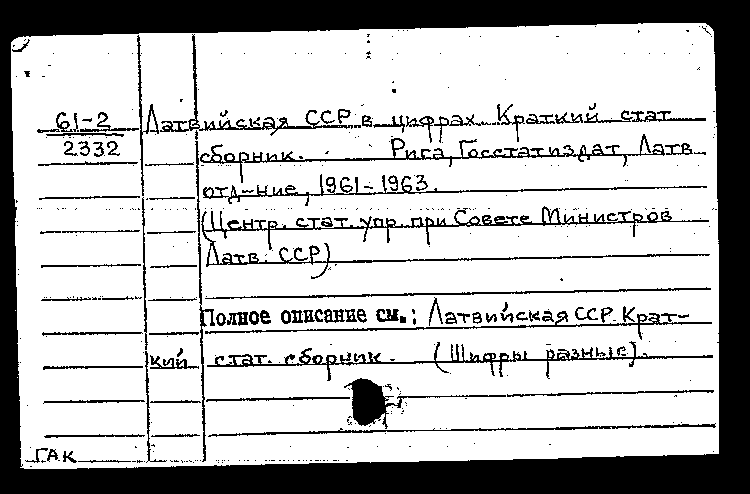 61-2 Латвийская ССР в цифрах. Краткий стат
2332 сборник. Рига, Госстатиздат, Латв.
отд-ние, 1961-1963.
(Центр. стат. упр. при Совете Министров
Латв. ССР)
Полное описание см.: Латвийская ССР. Крат-
кий стат. сборник. (Шифры разные).
ГАК